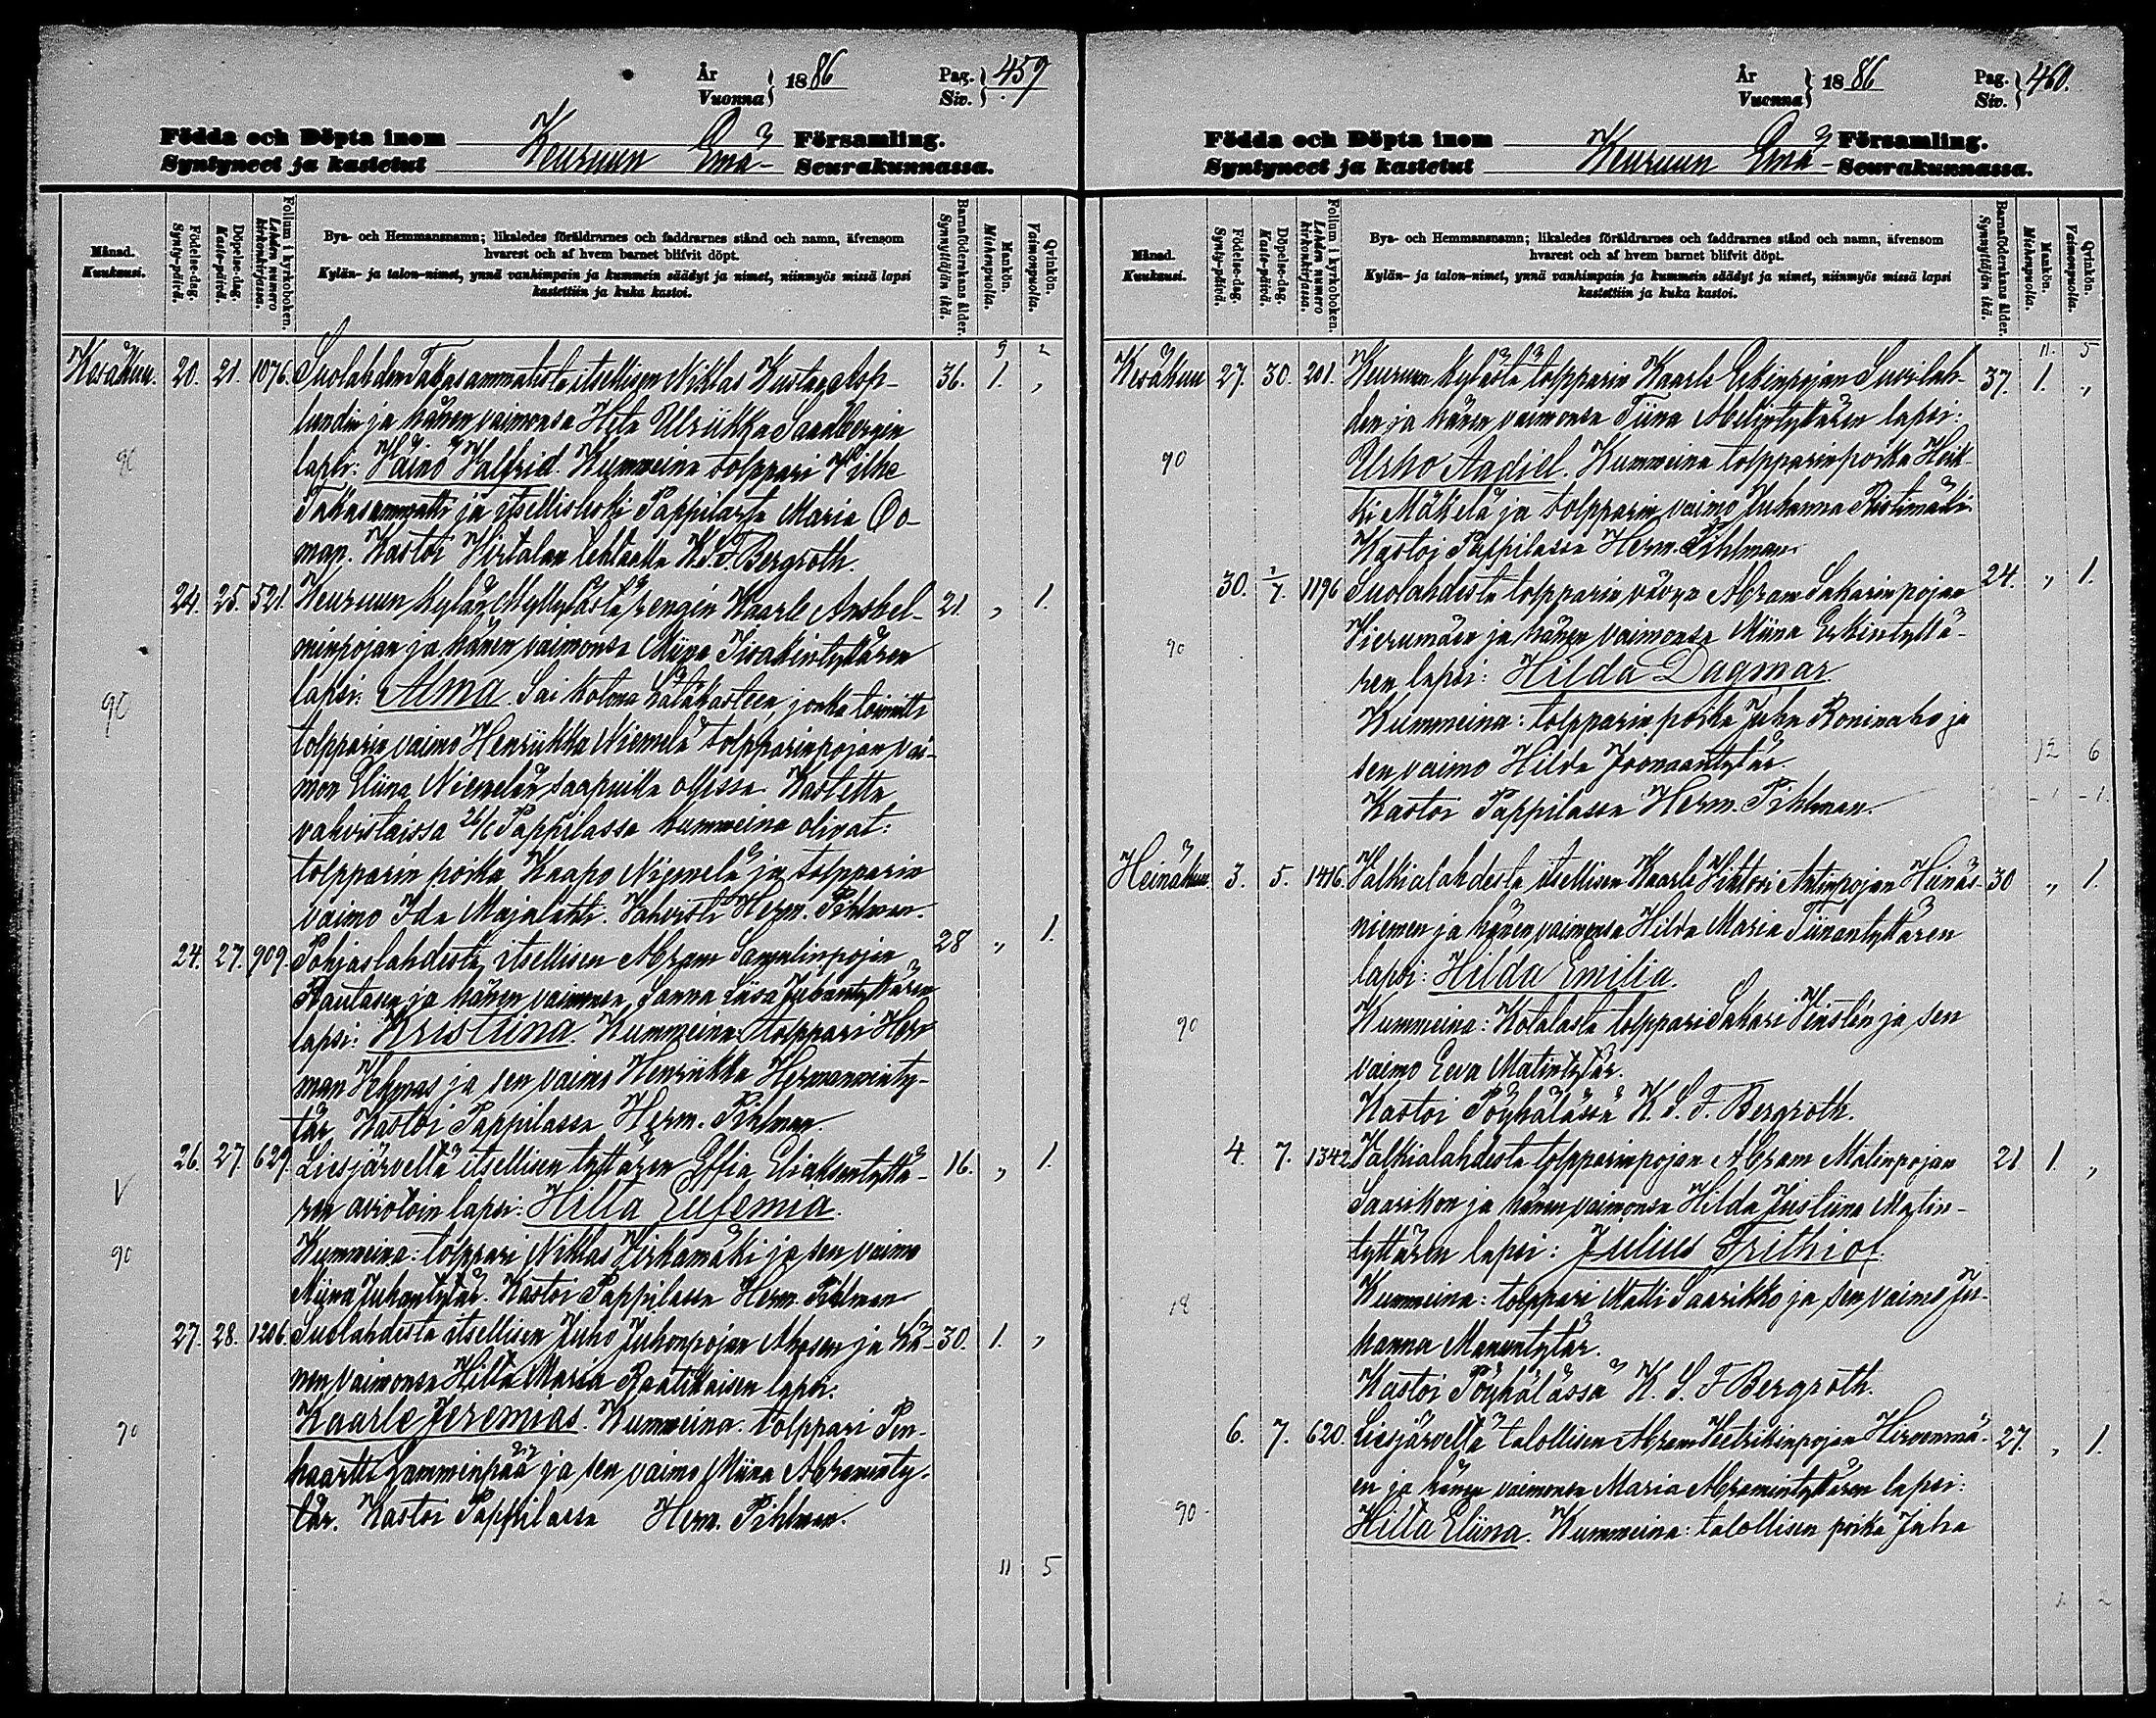 År
Vuonna } 1886 Pag.
Siv. } 459
Födda och Döpta inom
Syntyneet ja kastetut Keuruun Emä- Församling.
Seurakunnassa.
Månad.
Kuukausi.
Födelse-dag.
Synty-päivä.
Döpelse-dag.
Kaste-päivä.
Folium i kyrkoboken.
Lehden numero
kirkonkirjassa.
Bya- och Hemmansnamn; likaledes föräldrarnes och faddrarnes stånd och namn, äfvensom
hvarest och af hvem barnet blifvit döpt.
Kylän- ja talon-nimet, ynnä vanhimpain ja kummein säädyt ja nimet, niinmyös missä lapsi
kastettiin ja kuka kastoi.
Barnaföderskans ålder.
Synnyttäjän ikä.
Mankön.
Miehenpuolia.
Qvinkön.
Vaimonpuolia.
9 2
Kesäkuu. 20. 21. 1076. Suolahden Takasammatista itsellisen Niklas Kustaa Asp- 36. 1. „
lundin ja hänen vaimonsa Heta Ulriikka Sandbergin
90 lapsi: Väinö Valfrid. Kummeina tolppari Vilhe
Takasammatti ja itsellisleski Pappilasta Maria Öö-
man. Kastoi Virtalan lehtaalla K. S. F. Bergroth.
24. 25. 521. Keuruun kylän Myllylästä rengin Kaarle Anshel- 21. „ 1.
minpojan ja hänen vaimonsa Miina Iisakintyttären
90 lapsi: Alma. Sai kotona hätäkasteen, jonka toimitti
tolpparin vaimo Henriikka Niemelä tolpparinpojan vai-
mon Eliina Niemelän saapuilla ollessa. Kastetta
vahvistaissa 26/6 Pappilassa kummeina olivat:
tolpparin poika Kaapo Niemelä ja tolpparin
vaimo Ida Majalahti. Vahvisti Herm. Pihlman.
24. 27. 909. Pohjaslahdesta itsellisen Abram Samulinpojan 28 „ 1.
Rautasen ja hänen vaimonsa Sanna Liisa Juhantyttären
lapsi: Kristiina. Kummeina tolppari Her-
man Vehmas ja sen vaimo Henriikka Hermanninty-
tär. Kastoi Pappilassa Herm. Pihlman
26. 27. 629. Liesjärveltä itsellisen tyttären Effia Eliaksentyttä- 16. „ 1.
V ren aviotoin lapsi: Hilta Eufemia.
90 Kummeina: tolppari Niklas Virkamäki ja sen vaimo
Miina Juhantytär. Kastoi Pappilassa Herm. Pihlman
27. 28. 1206. Suolahdesta itsellisen Juho Juhonpojan Ahosen ja hä- 30. 1. „
nen vaimonsa Hilta Maria Raatikaisen lapsi:
90 Kaarle Jeremias. Kummeina: tolppari Pen-
haartti Lamminpää ja sen vaimo Miina Abraminty-
tär. Kastoi Pappilassa Herm. Pihlman.
11 5
År
Vuonna } 1886 Pag.
Siv. } 460.
Födda och Döpta inom
Syntyneet ja kastetut Keuruun Emä- Församling.
Seurakunnassa.
Månad.
Kuukausi.
Födelse-dag.
Synty-päivä.
Döpelse-dag.
Kaste-päivä.
Folium i kyrkoboken.
Lehden numero
kirkonkirjassa.
Bya- och Hemmansnamn; likaledes föräldrarnes och faddrarnes stånd och namn, äfvensom
hvarest och af hvem barnet blifvit döpt.
Kylän- ja talon-nimet, ynnä vanhimpain ja kummein säädyt ja nimet, niinmyös missä lapsi
kastettiin ja kuka kastoi.
Barnaföderskans ålder.
Synnyttäjän ikä.
Mankön.
Miehenpuolia.
Qvinkön.
Vaimonpuolia.
11. 5
Kesäkuu 27. 30. 201. Keuruun kylästä tolpparin Kaarle Erkinpojan Suvilah- 37. 1. „
den ja hänen vaimonsa Tiina Abelintyttären lapsi:
90 Urho Aadiel. Kummeina tolpparinpoika Heik-
ki Mäkelä ja tolpparin vaimo Juhanna Ristimäki.
Kastoi Pappilassa Herm. Pihlman.
30. 1/7. 1196 Suolahdesta tolpparin vävyn Abram Sakarinpojan 24. „ 1.
90 Vierumäen ja hänen vaimonsa Miina Erkintyttä-
ren lapsi: Hilda Dagmar.
Kummeina: tolpparin poika Juha Roninaho ja
sen vaimo Hilda Joonaantytär. 12 6
Kastoi Pappilassa Herm. Pihlman. - 1 - 1.
Heinäkuu. 3. 5. 1416. Valkialahdesta itsellisen Kaarle Viktori Antinpojan Heinäs- 30 „ 1.
niemen ja hänen vaimonsa Hilda Maria Tiinantyttären
lapsi: Hilda Emilia.
90 Kummeina: Kotalasta tolppari Sakari Vinstén ja sen
vaimo Eeva Matintytär.
Kastoi Pöyhälässä K. S. F. Bergroth.
4. 7. 1342. Valkialahdesta tolpparinpojan Abram Matinpojan 21 1. „
Saarikon ja hänen vaimonsa Hilda Justiina Matin-
tyttären lapsi: Julius Frithiof.
18 Kummeina: tolppari Matti Saarikko ja sen vaimo Ju-
hanna Manuntytär.
Kastoi Pöyhälässä K. S. F Bergroth.
6. 7. 620. Liesjärveltä talollisen Abram Hetrikinpojan Hirvenmä- 27. „ 1.
en ja hänen vaimonsa Maria Abramintyttären lapsi:
90 Hilta Eliina. Kummeina: talollisen poika Juha
1. 2